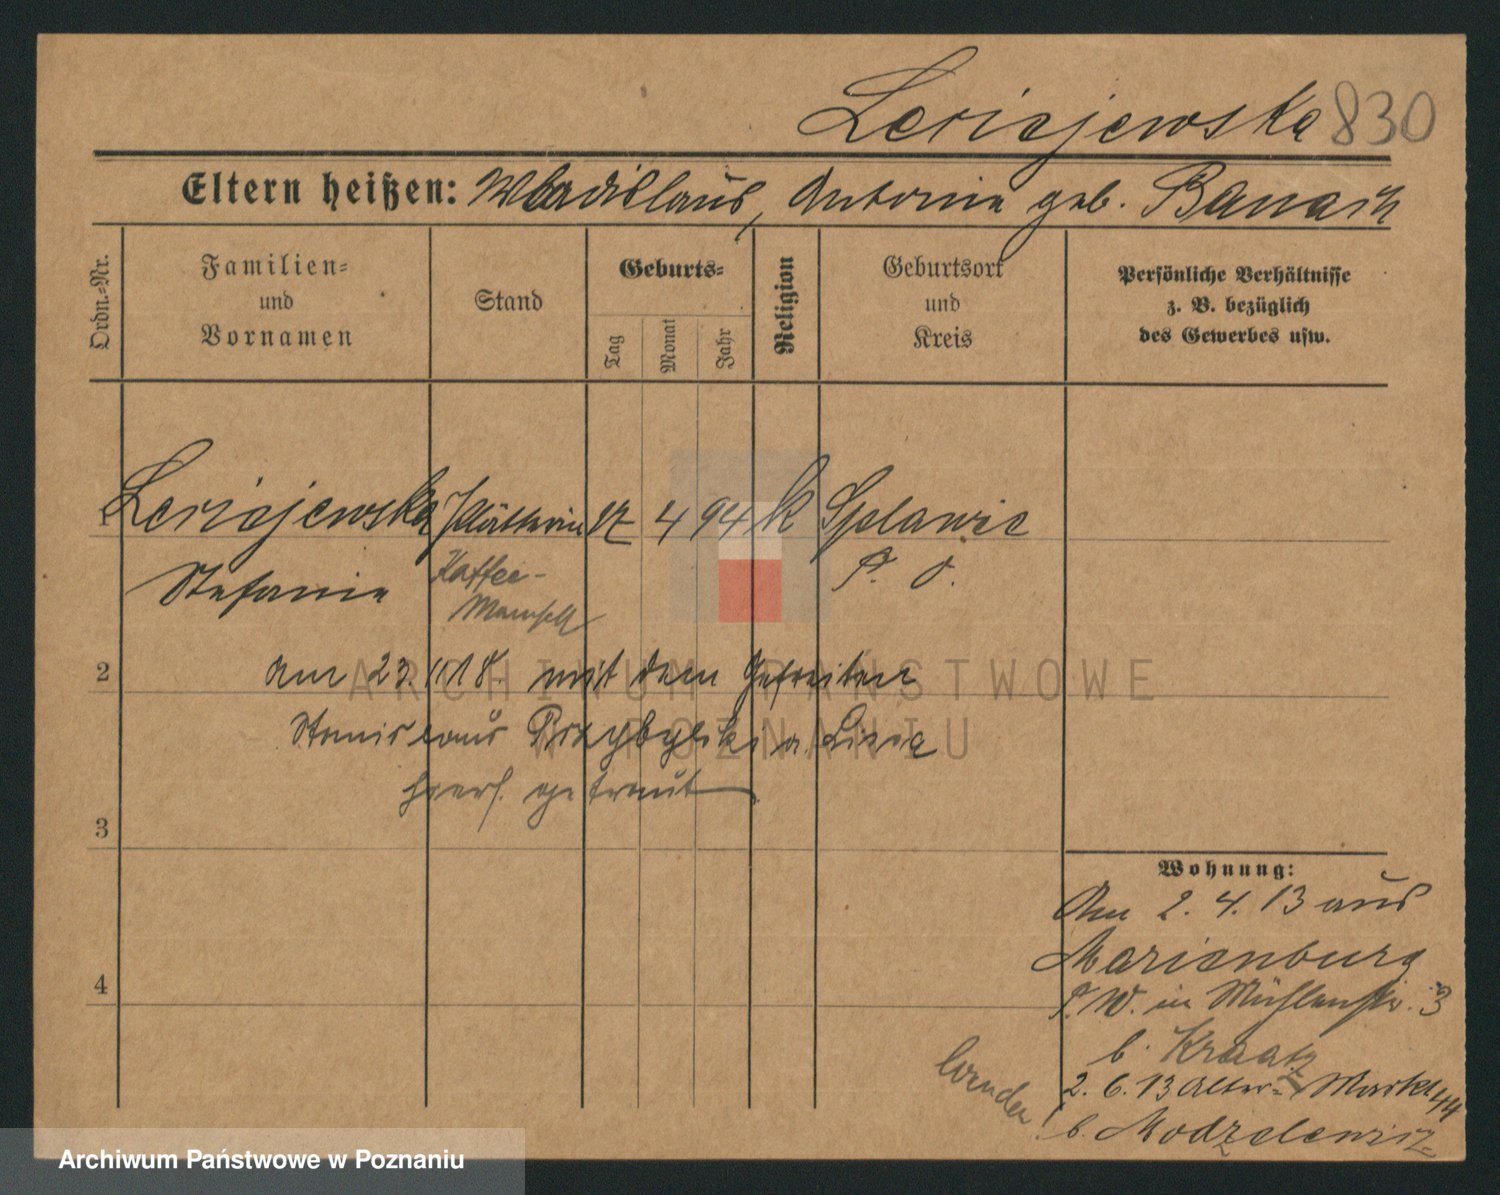 830
Eltern heißen: Wladislaus, Antonie geb. Banach
Ordn.-Nr.
Familien-
und
Vornamen
Stand
Geburts-
Tag
Monat
Jahr
Religion
Geburtsort
und
Kreis
Persönliche Verhältnisse
z. B. bezüglich
des Gewerbes usw.
1
Plätterin 17 4 94 k Splawie
Stefanie
Kaffee-
Mamsell
P. O.
2
am 23 11 18. mit dem Gefreiten
Stanislaus Przybylski a Lissa
hiers. getraut
3
4
Wohnung:
Am 2. 4. 13 aus
Marienburg
P. W. in Mühlenstr. 3
b. Kraatz
2. 6. 13 Alter-Markt 44
b. Modzelewicz
wenden!
ARCHIWUM PAŃSTWOWE
W POZNANIU
Archiwum Państwowe w Poznaniu